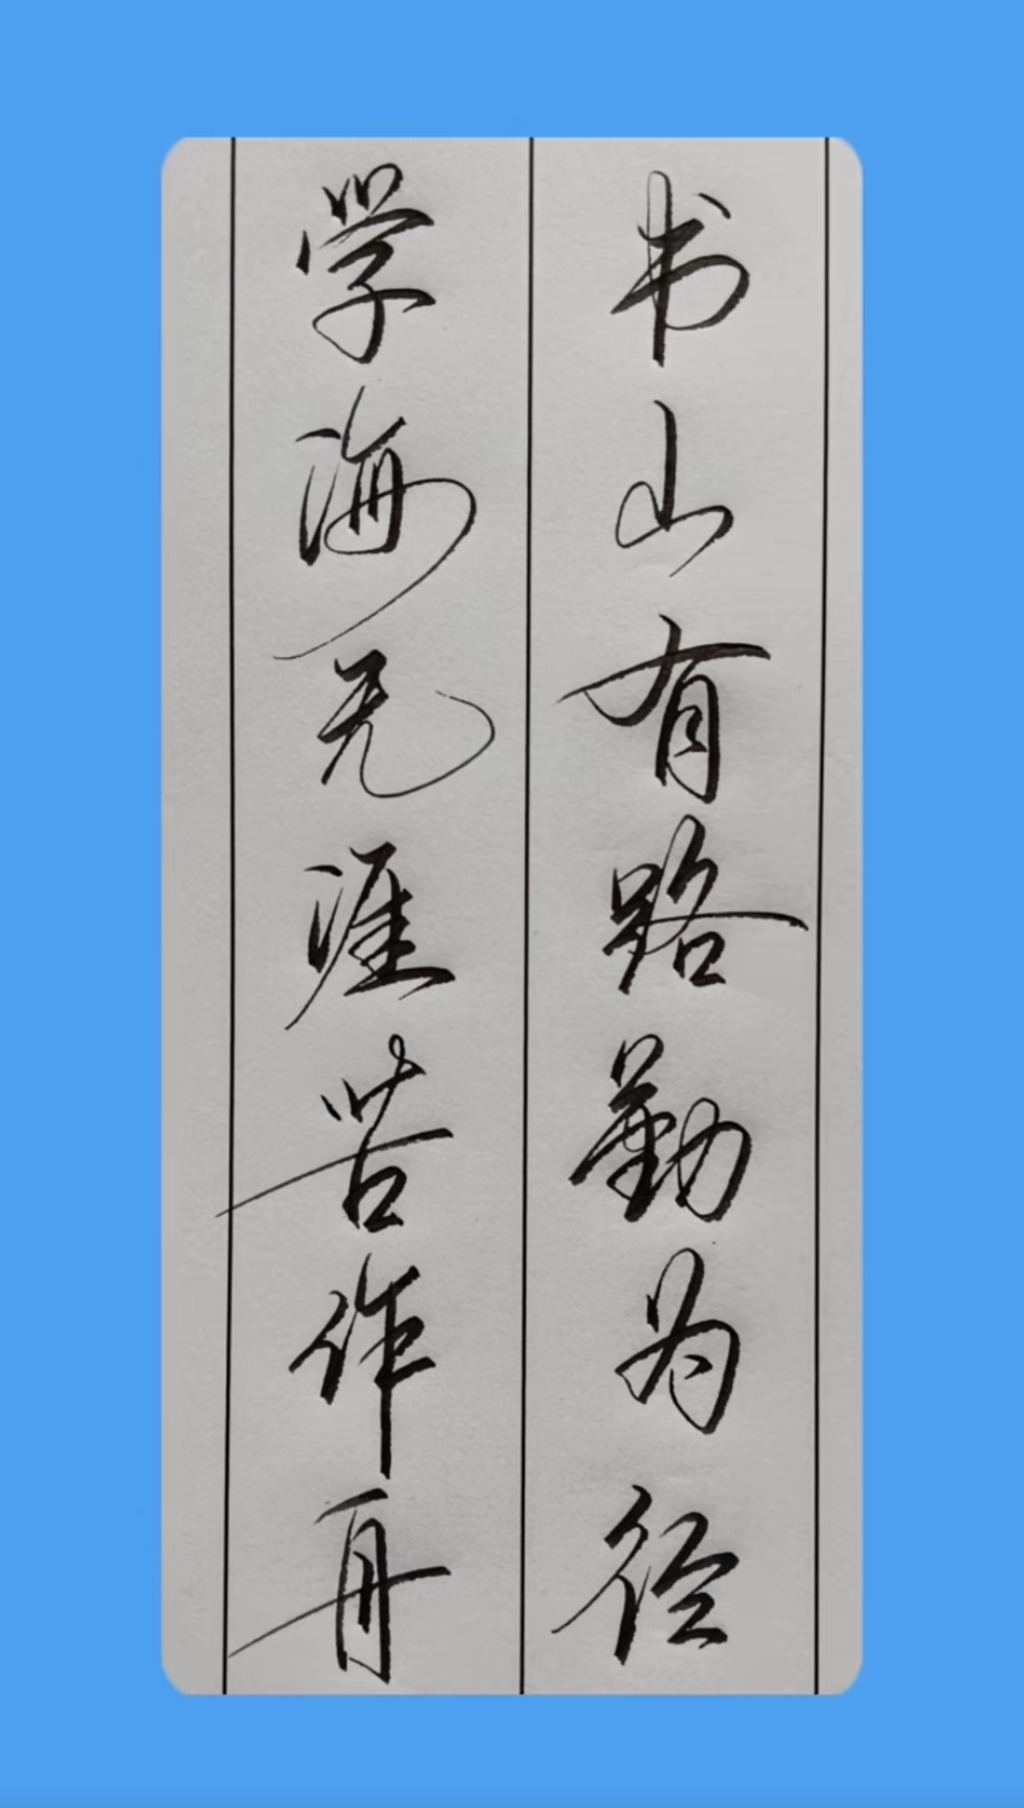 书山有路勤为径
学海无涯苦作舟